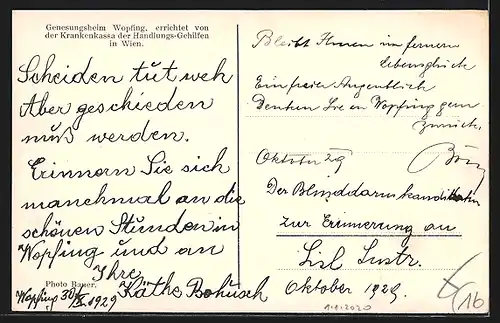 Genesungsheim Wopfing, errichtet von
der Krankenkassa der Handlungs-Gehilfen
in Wien.
Scheiden tut weh
Aber geschieden
muß werden.
Erinnern Sie sich
manchmal an die
schönen Stunden in
Wopfing und an
Ihre
Käthe Bohusch
Photo Bauer.
Wopfing 30/X. 1929
Bleibt Ihnen im fernern
Lebensglücke
Ein freier Augenblick
Denken Sie an Wopfing gern
zurück.
Oktober 29
Der Blinddarmkandidatin
zur Erinnerung an
Lisl Lustr.
Oktober 1929.
1.1.2020
16